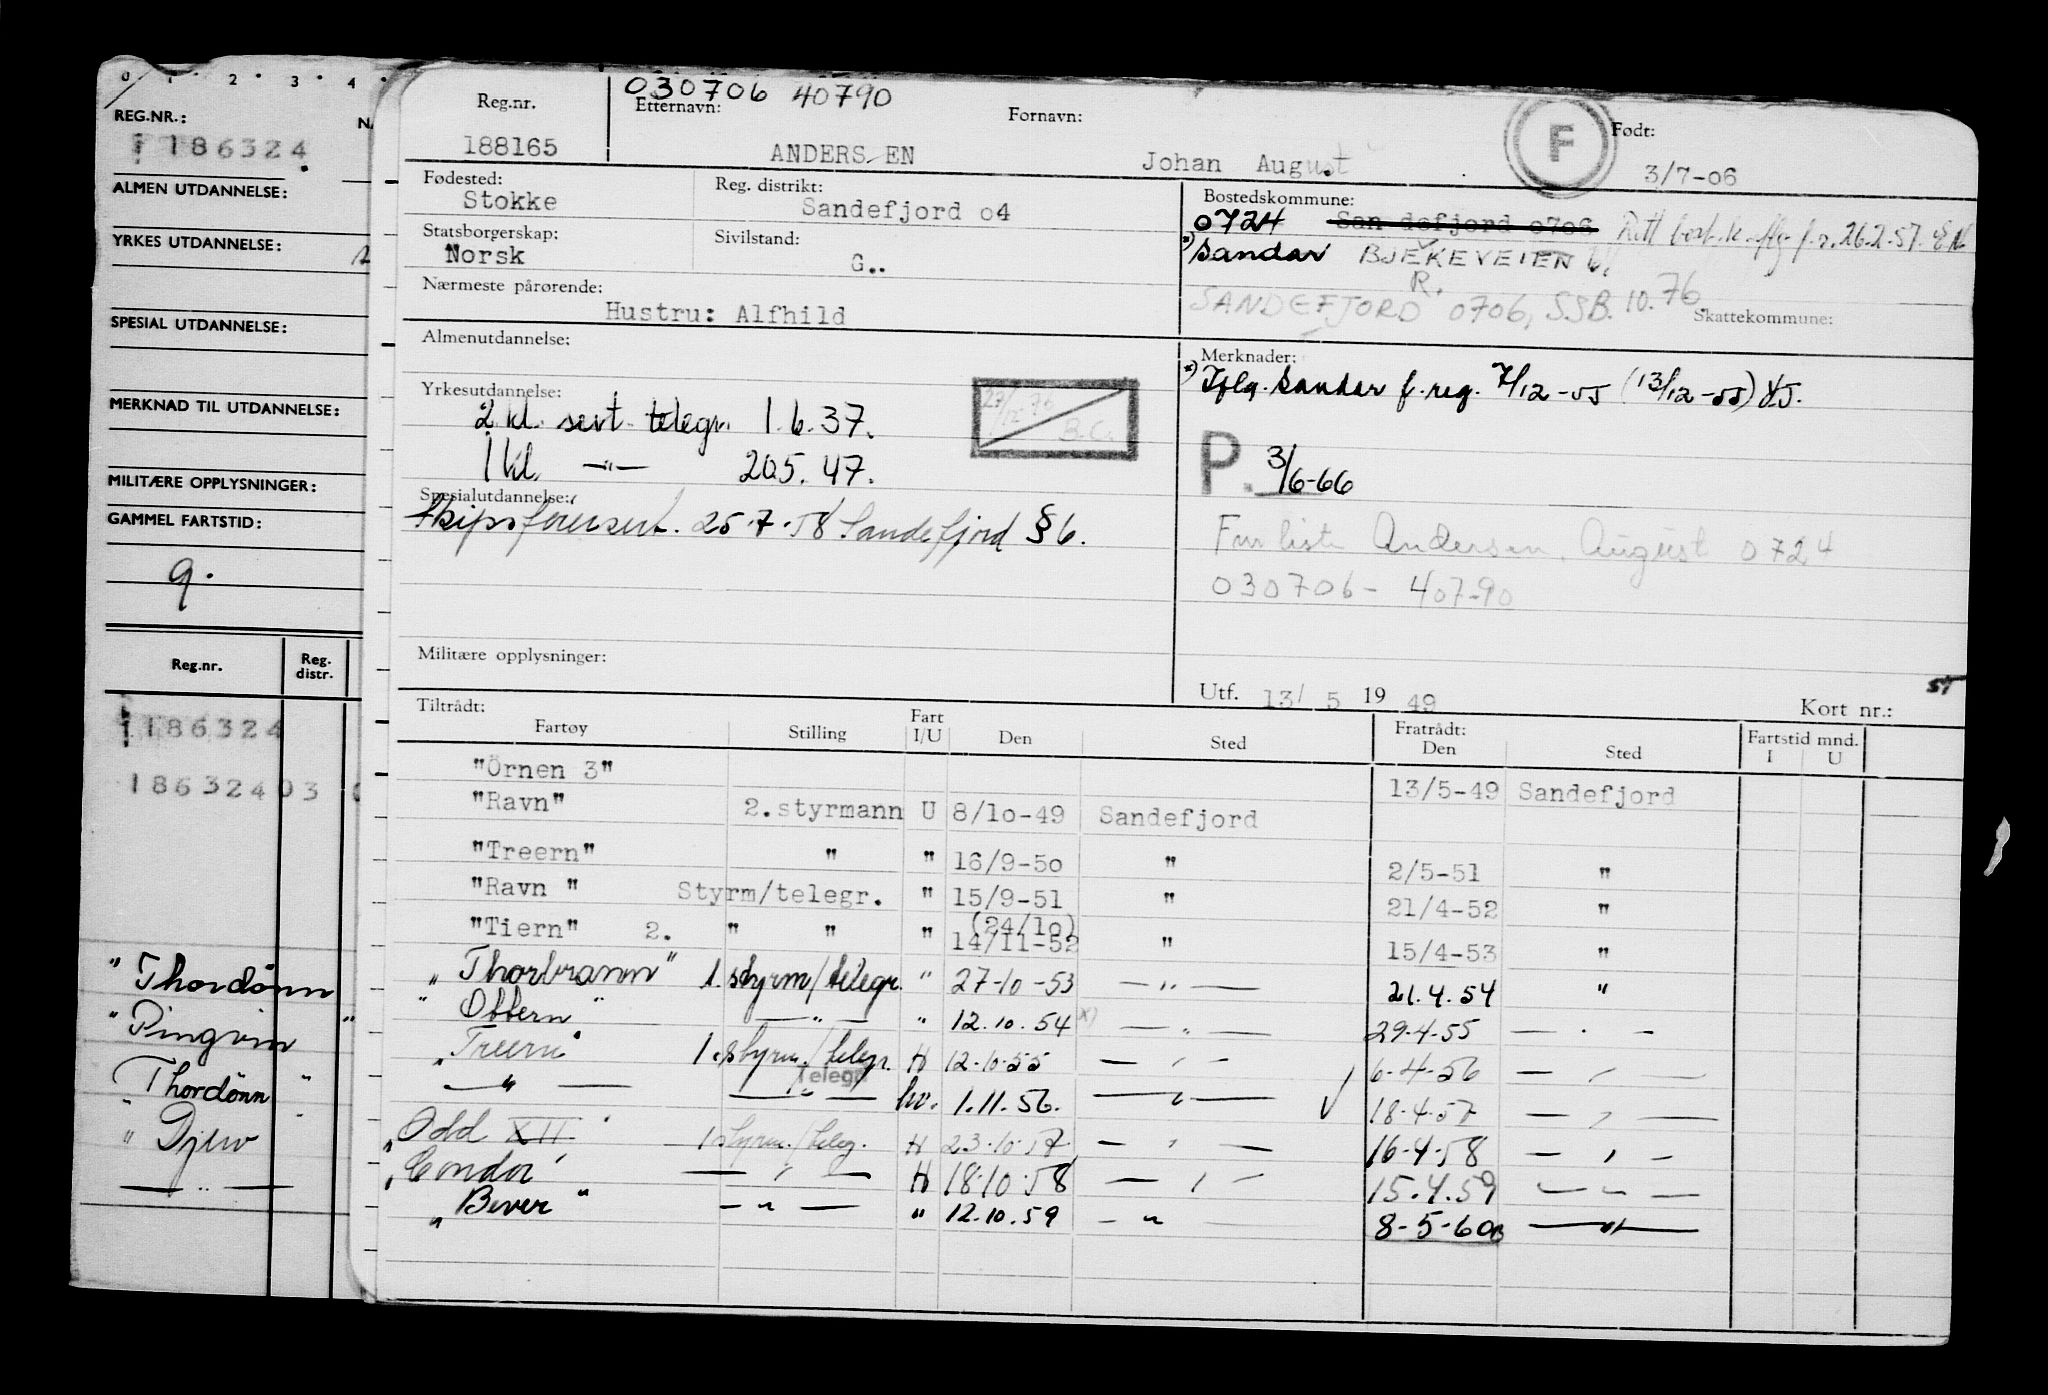 0 1 2 3 4
REG.NR.:
186324
ALMEN UTDANNELSE:
YRKES UTDANNELSE:
SPESIAL UTDANNELSE:
MERKNAD TIL UTDANNELSE:
MILITÆRE OPPLYSNINGER:
GAMMEL FARTSTID:
9.
Reg.nr. Reg. distr.
186324
18632403
"Thordønn
"Pingvin "
Thordønn "
" Djerv
— " —
030706 40790
Reg.nr. Etternavn: Fornavn: F Født:
188165 ANDERSEN Johan August 3/7-06
Fødested: Reg. distrikt: Bostedskommune:
Stokke Sandefjord o4 0724 San defjord o706 Rett bost.k. iflg. f.r. 26.2.57. EN
Statsborgerskap: Sivilstand: *) Sandar BJERKEVEIEN
Norsk G..
Nærmeste pårørende: SANDEFJORD 0706, SSB. 10.76
Hustru: Alfhild Skattekommune:
Almenutdannelse: Merknader:
*) Iflg. Sandar f.reg. 7/12-55 (13/12-55)
Yrkesutdannelse:
2 kl. sert. telegr. 1.6.37. B.C.
1 kl. —"— 20.5.47. P. 3/6-66
Spesialutdannelse:
Skipsførersert. 25.7.58 Sandefjord § 6.
Andersen, August 0724
030706- 40790
Militære opplysninger:
Utf. 13/ 5 19 49 Kort nr.:
Tiltrådt: Fratrådt: Fartstid mnd.
Fartøy Stilling Fart I/U Den Sted Den Sted I U
"Örnen 3" 13/5-49 Sandefjord
"Ravn" 2.styrmann U 8/1o-49 Sandefjord
"Treern" " " 16/9-5o " 2/5-51 "
"Ravn " Styrm/telegr. " 15/9-51 " 21/4-52 "
(24/1o)
"Tiern" 2. " " " 14/11-52 " 15/4-53 "
"Thorbrann" 1. styrm/telegr. " 27-10-53 —"— 21.4.54 "
"Ottern" —"— " 12.10.54 x) —"— 29-4-55 —"—
"Treern" 1. styrm./telegr. H 12-10-55 —"— 6-4-56 —"—
Telegr
—"— —"— hv. 1.11.56. —"— 18-4-57 —"—
"Odd XII" 1 styrm./teleg. H 23-10-57 —"— 16-4-58 —"—
"Condor" —"— H 18-10-58 —"— 15.4.59 —"—
"Bever" —"— " 12.10.59 —"— 8-5-60 —"—